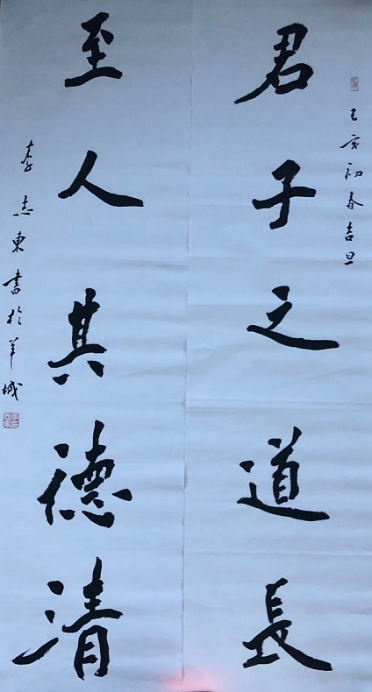 己亥初春吉旦
君子之道長
至人其德清
李志東書於羊城